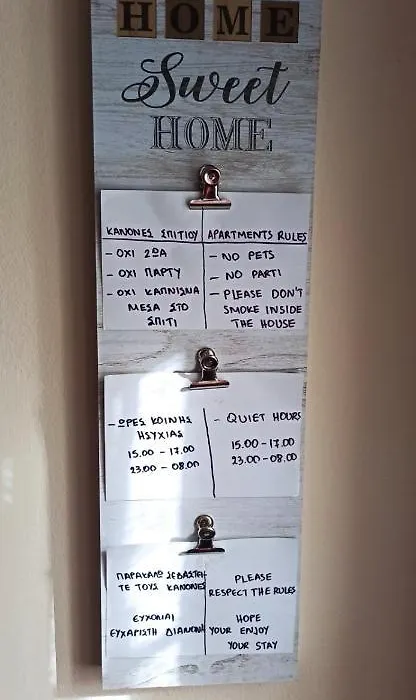 HOME
Sweet
HOME
ΚΑΝΟΝΕΣ ΣΠΙΤΙΟΥ
- ΟΧΙ ΖΩΑ
- ΟΧΙ ΠΑΡΤΥ
- ΟΧΙ ΚΑΠΝΙΣΜΑ
ΜΕΣΑ ΣΤΟ
ΣΠΙΤΙ
APARTMENTS RULES
- NO PETS
- NO PARTI
- PLEASE DON'T
SMOKE INSIDE
THE HOUSE
- ΩΡΕΣ ΚΟΙΝΗΣ
ΗΣΥΧΙΑΣ
15.00 - 17.00
23.00 - 08.00
- QUIET HOURS
15.00 - 17.00
23.00 - 08.00
ΠΑΡΑΚΑΛΩ ΣΕΒΑΣΤΕΙ-
ΤΕ ΤΟΥΣ ΚΑΝΟΝΕΣ
ΕΥΧΟΜΑΙ
ΕΥΧΑΡΙΣΤΗ ΔΙΑΜΟΝΗ
PLEASE
RESPECT THE RULES
HOPE
YOUR ENJOY
YOUR STAY